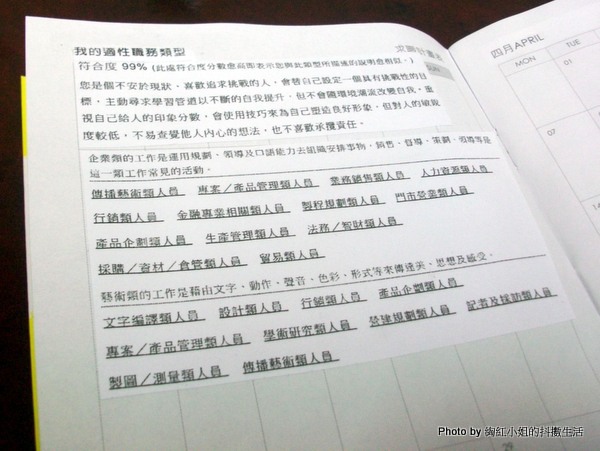 我的適性職務類型
求職計畫
四月APRIL
MON
TUE
符合度 99% (此處符合度分數愈高即表示您與此類型所描述的說明愈相似。)
您是個不安於現狀、喜歡追求挑戰的人，會替自己設定一個具有挑戰性的目
標，主動尋求學習管道以不斷的自我提升，但不會隨環境潮流改變自我。重
視自己給人的印象分數，會使用技巧來為自己塑造良好形象，但對人的敏銳
度較低，不易查覺他人內心的想法，也不喜歡承攬責任。
企業類的工作是運用規劃、領導及口語能力去組織安排事物，銷售、督導、策劃、領導等是
這一類工作常見的活動。
傳播藝術類人員 專案／產品管理類人員 業務銷售類人員 人力資源類人員
行銷類人員 金融專業相關類人員 製程規劃類人員 門市營業類人員
產品企劃類人員 生產管理類人員 法務／智財類人員
採購／資材／倉管類人員 貿易類人員
藝術類的工作是藉由文字、動作、聲音、色彩、形式等來傳達美、思想及感受。
文字編譯類人員 設計類人員 行銷類人員 產品企劃類人員
專案／產品管理類人員 學術研究類人員 營建規劃類人員 記者及採訪類人員
製圖／測量類人員 傳播藝術類人員
01
07
29
Photo by 絢紅小姐的抖擻生活